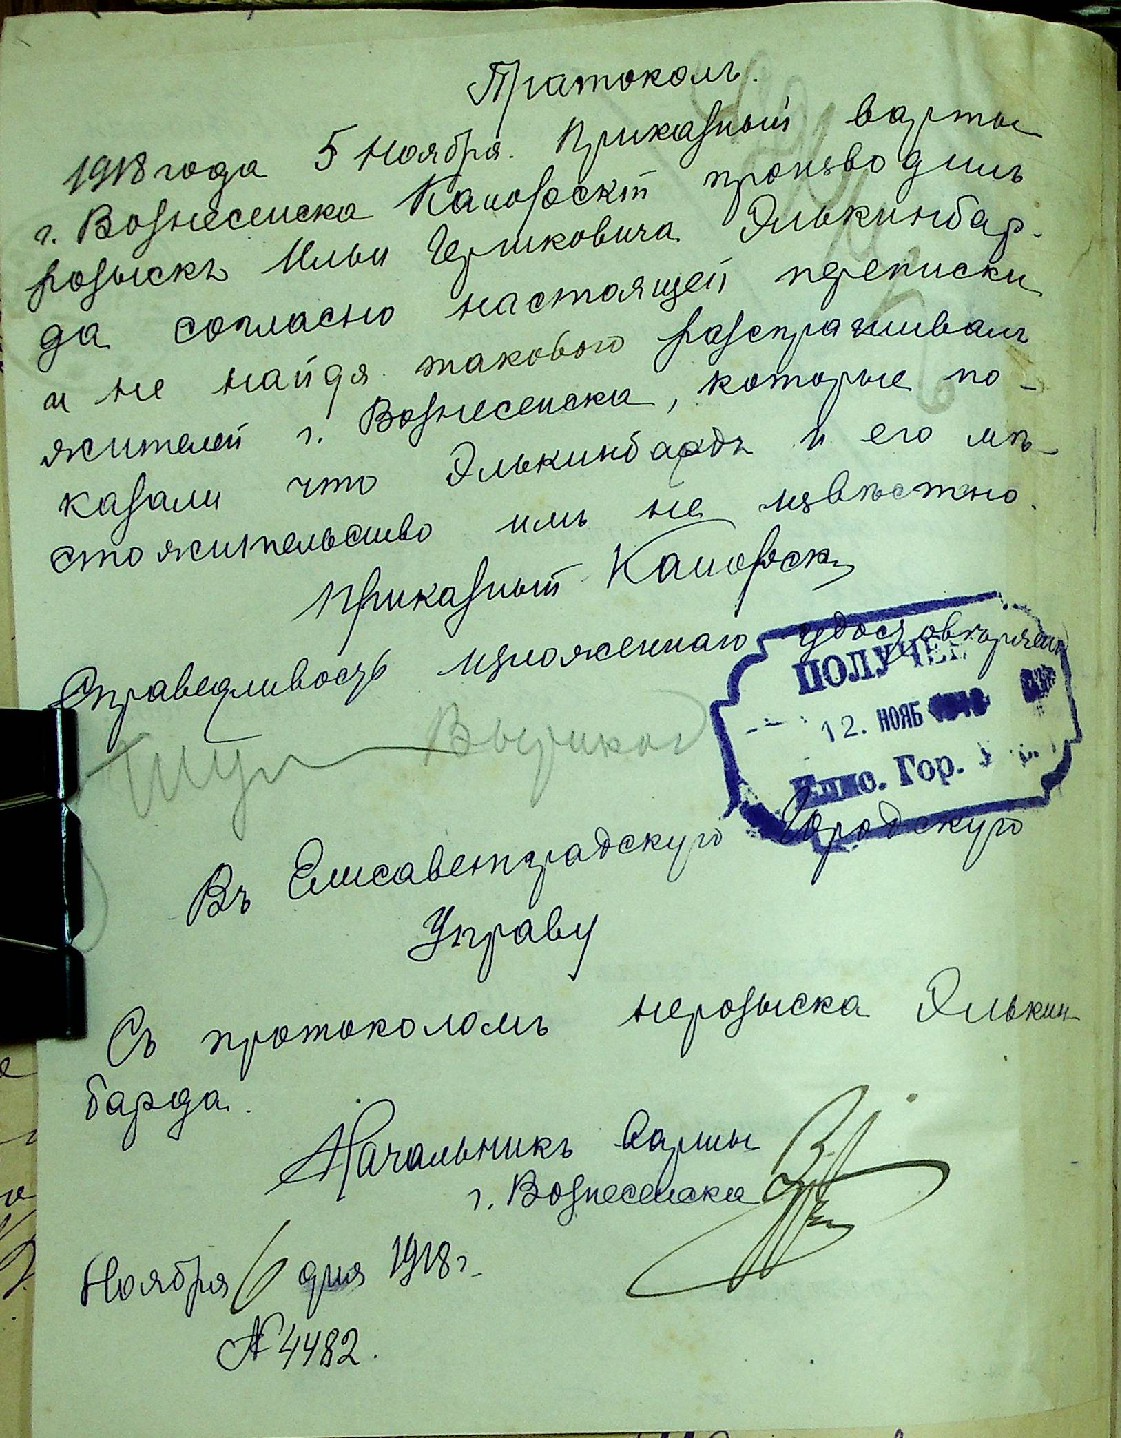 Пратоколъ.
1918 года 5 Ноября. Приказный варты
г. Вознесенска Кановскій производилъ
розыскъ Ильи Гершковича Элькинбар-
да согласно настоящей переписки
и не найдя таковою разспрашивалъ
жителей г. Вознесенска, которые по-
казали что Элькинбардъ и его мѣ-
стожительство имъ не извѣстно.
Приказный
Справедливость изложеннаго удостовѣряю
ПОЛУЧЕ
12. НОЯБ
Елис. Гор.
Въ Елисаветградскую Городскую
Управу
Съ протоколомъ нерозыска Элькин-
барда.
Начальникъ варты
г. Вознесенска
Ноября 6 дня 1918 г.
№ 4482.